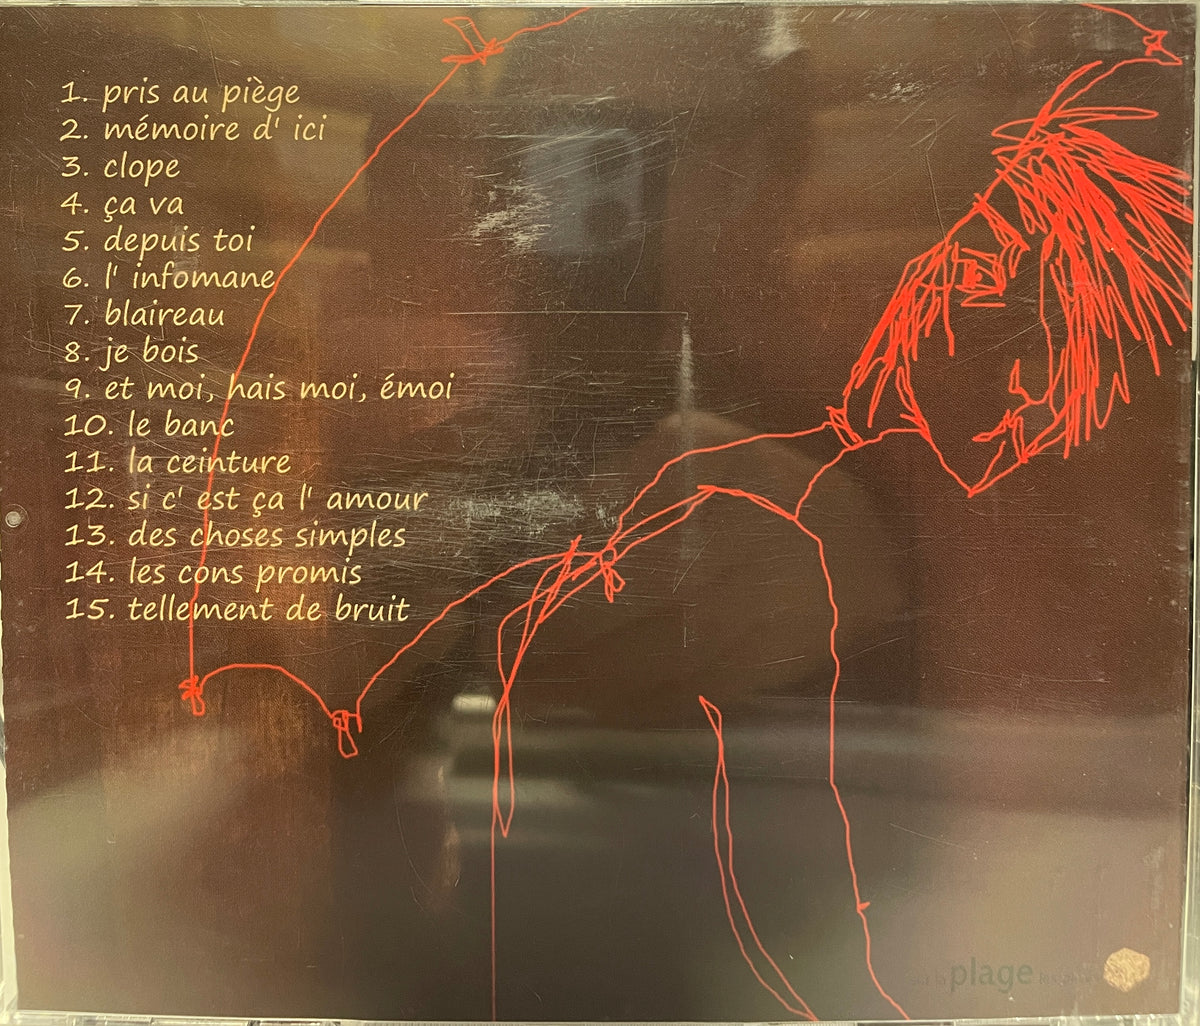 1. pris au piège
2. mémoire d' ici
3. clope
4. ça va
5. depuis toi
6. l' infomane
7. blaireau
8. je bois
9. et moi, hais moi, émoi
10. le banc
11. la ceinture
12. si c' est ça l' amour
13. des choses simples
14. les cons promis
15. tellement de bruit
plage